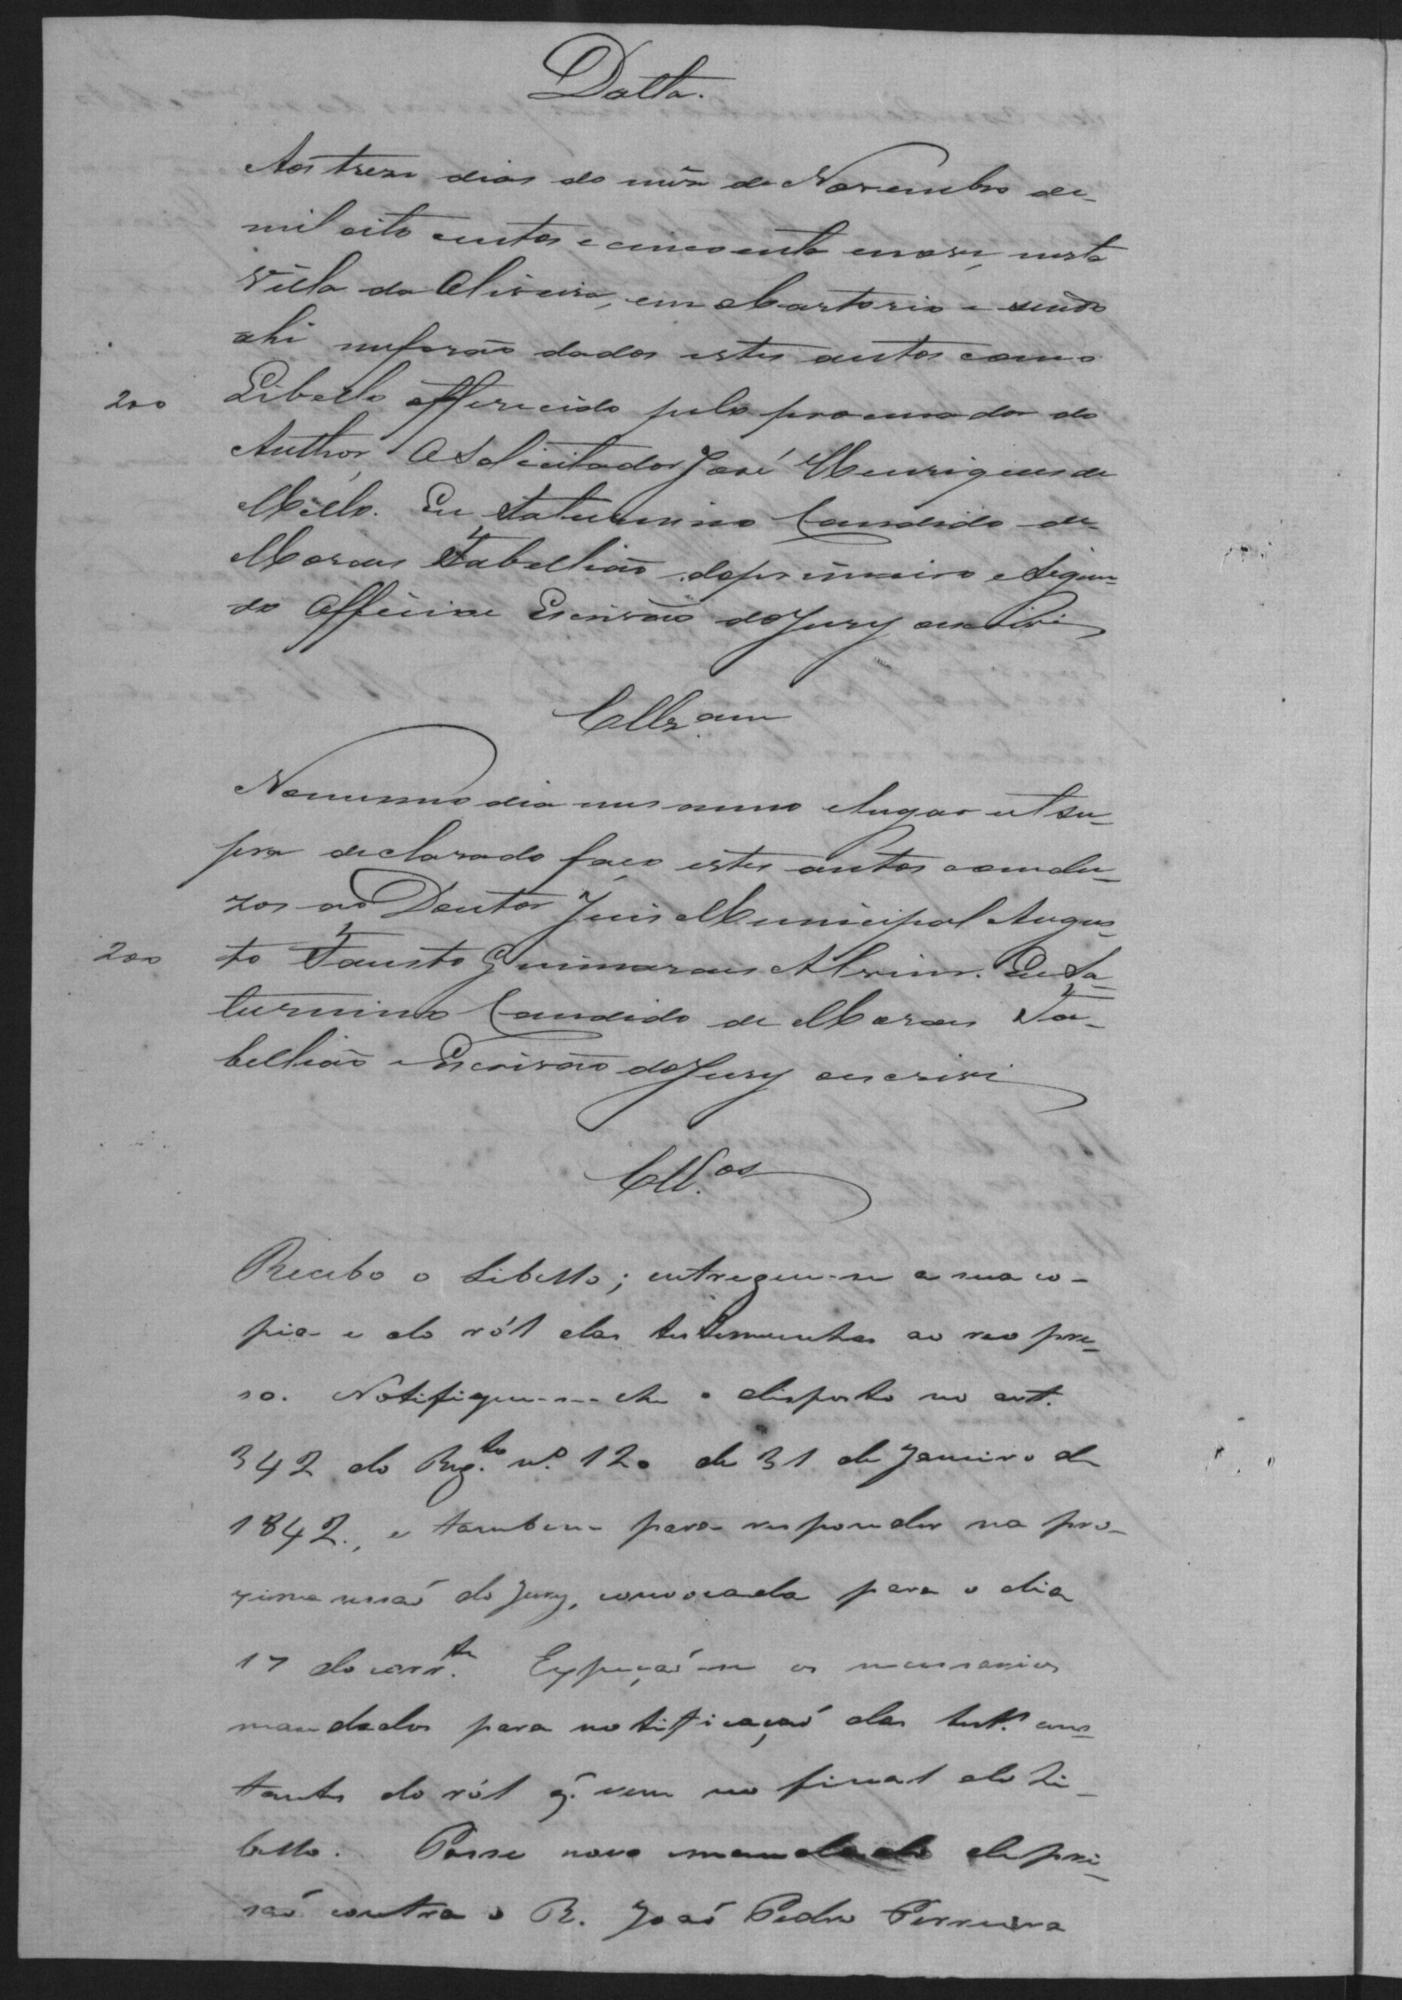 Datta.
Aos treze dias do mês de Novembro de
mil oito centos e cincoenta enove, nesta
Villa da Oliveira, em Cartorio e sendo
ahi meforão dados estes autos com o
200 Libello offerecido pelo procurador do
Author, O Solicitador José Henriques de
Mello. Eu Saturnino Candido de
Moraes Tabellião do primeiro e Segun-
do Officio e Escrivão do Jury escrivi
Cllzam
No mesmo dia mes anno e lugar ut su-
pra declarado faço estes autos comclu-
zos ao Doutor Juis Municipal Augus-
200 to Fausto Guimaraes Alvim. Eu Sa-
turnino Candido de Moraes Ta-
bellião e Escrivão do Jury escrivi
Cll.os
Recebo o Libello; entregue-se a sua co-
pia e do ról das testemunhas ao reo pre-
so. Notifique-se-lhe o disposto no art.
342 do Reg.to n.o 120 de 31 de Janeiro de
1842, e tambem para responder na pro-
xima sessaõ do Jury, convocada para o dia
17 do corr.te Expeçaõ-se os necessarios
mandados para notificaçaõ das test.as cons-
tantes do ról q. vem no final do Li-
bello. Passe novo mandado de pri-
saõ contra o R. Joaõ Pedro Ferreira